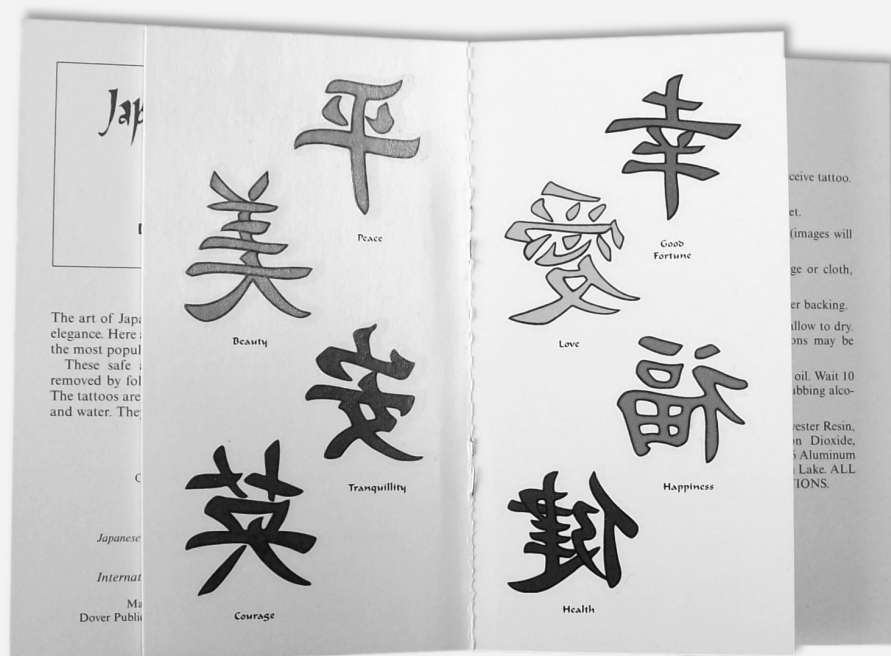 Jap
The art of Japa
elegance. Here
the most popul
These safe
removed by fol
The tattoos are
and water. The
Japanese
Internat
Ma
Dover Public
平
Peace
美
Beauty
安
Tranquillity
英
Courage
幸
Good
Fortune
愛
Love
福
Happiness
健
Health
ceive tattoo.
et.
(images will
ge or cloth,
er backing.
allow to dry.
ons may be
oil. Wait 10
ubbing alco-
yester Resin,
on Dioxide,
Aluminum
Lake. ALL
TIONS.